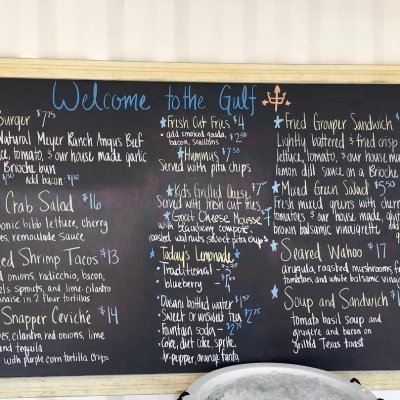 Welcome to the Gulf
Burger $7.75
Natural Meyer Ranch Angus Beef
tomato, & our house made garlic
Brioche bun
add bacon
Crab Salad $16
bibb lettuce, cherry
remoulade sauce
Shrimp Tacos $13
onions, radicchio, bacon,
sprouts, and lime-cilantro
in 2 flour tortillas
Snapper Ceviché $14
cilantro, red onions, lime
and tequila
with purple corn tortilla chips
Fresh Cut Fries $4
• add smoked gouda, $2.50
bacon, scallions
Hummus $7.50
Served with pita chips
Kids Grilled Cheese $7
Served with fresh cut fries
Goat Cheese Mousse 7
with blackberry compote,
roasted walnuts, & pita chips
Today's Lemonade
• Traditional
• blueberry
• Dasani bottled water
• Sweet or unsweet tea $2.75
• Fountain soda - $2.75
• Coke, diet coke, sprite
dr. pepper, orange fanta
Fried Grouper Sandwich
Lightly battered & fried crisp
lettuce, tomato, & our house
lemon dill sauce on a
Mixed Green Salad $5.50
Fresh mixed greens with
tomatoes & our house made
brown balsamic vinaigrette
Seared Wahoo $17
arugula, roasted mushrooms,
tomatoes, and white balsamic
Soup and Sandwich
tomato basil soup and
gruyere and bacon on
grilled Texas toast